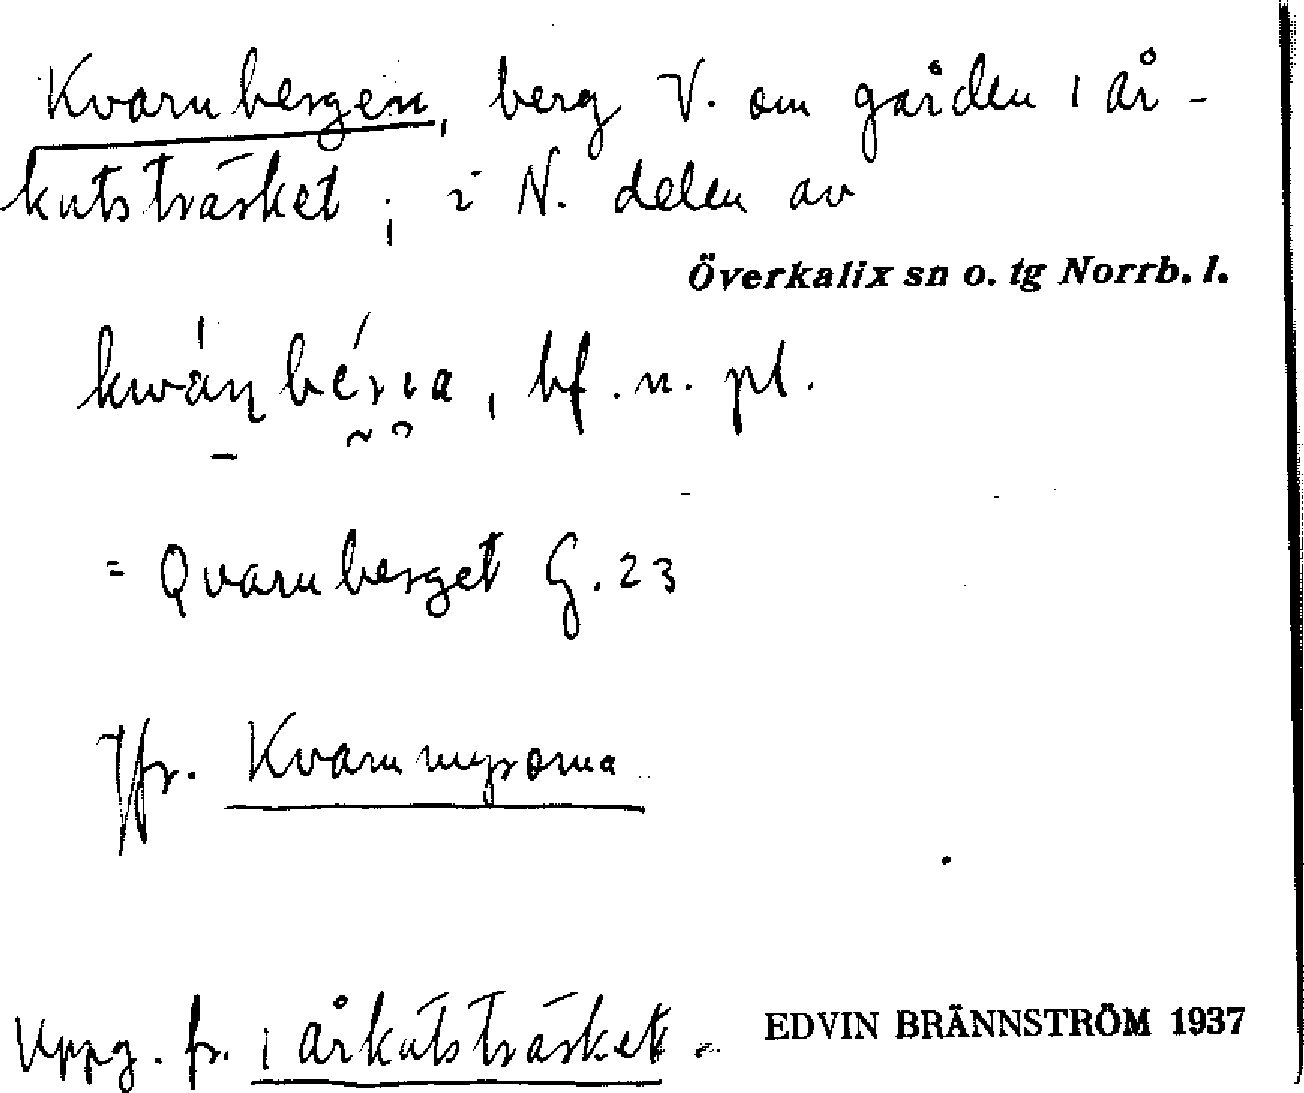 Kvarnbergen, berg V. om gården i år-
kutsträsket; i N. delen av
Överkalix sn o. tg Norrb. l.
bf. n. pl.
= Qvarnberget G. 23
Jfr. Kvarnmyrorna
Uppg. fr. i årkutsträsket.
EDVIN BRÄNNSTRÖM 1937